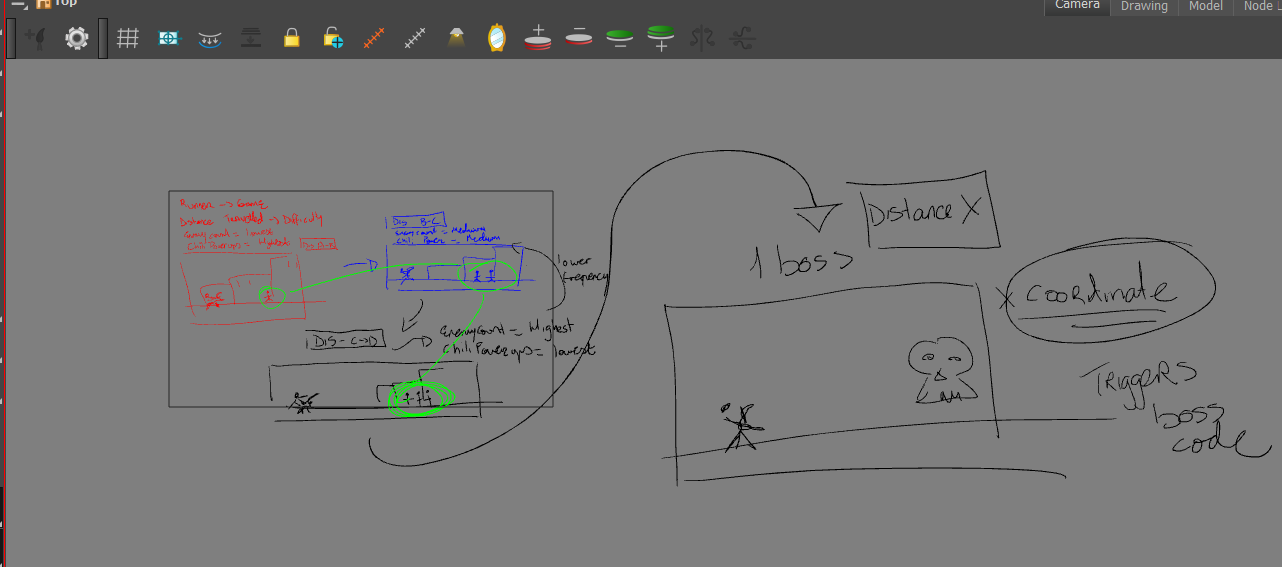 Top
Camera Drawing Model Node
Runner → Game
Distance → Difficulty
Enemy count = lowest
Chili Powerups = Highest
DIS B-C
Enemy count = Medium
Chili Power = Medium
lower
DIS - C→D
Enemy count = Highest
Chili Powerups = lowest
Distance X
1 boss
X coordinate
Triggers
boss
code